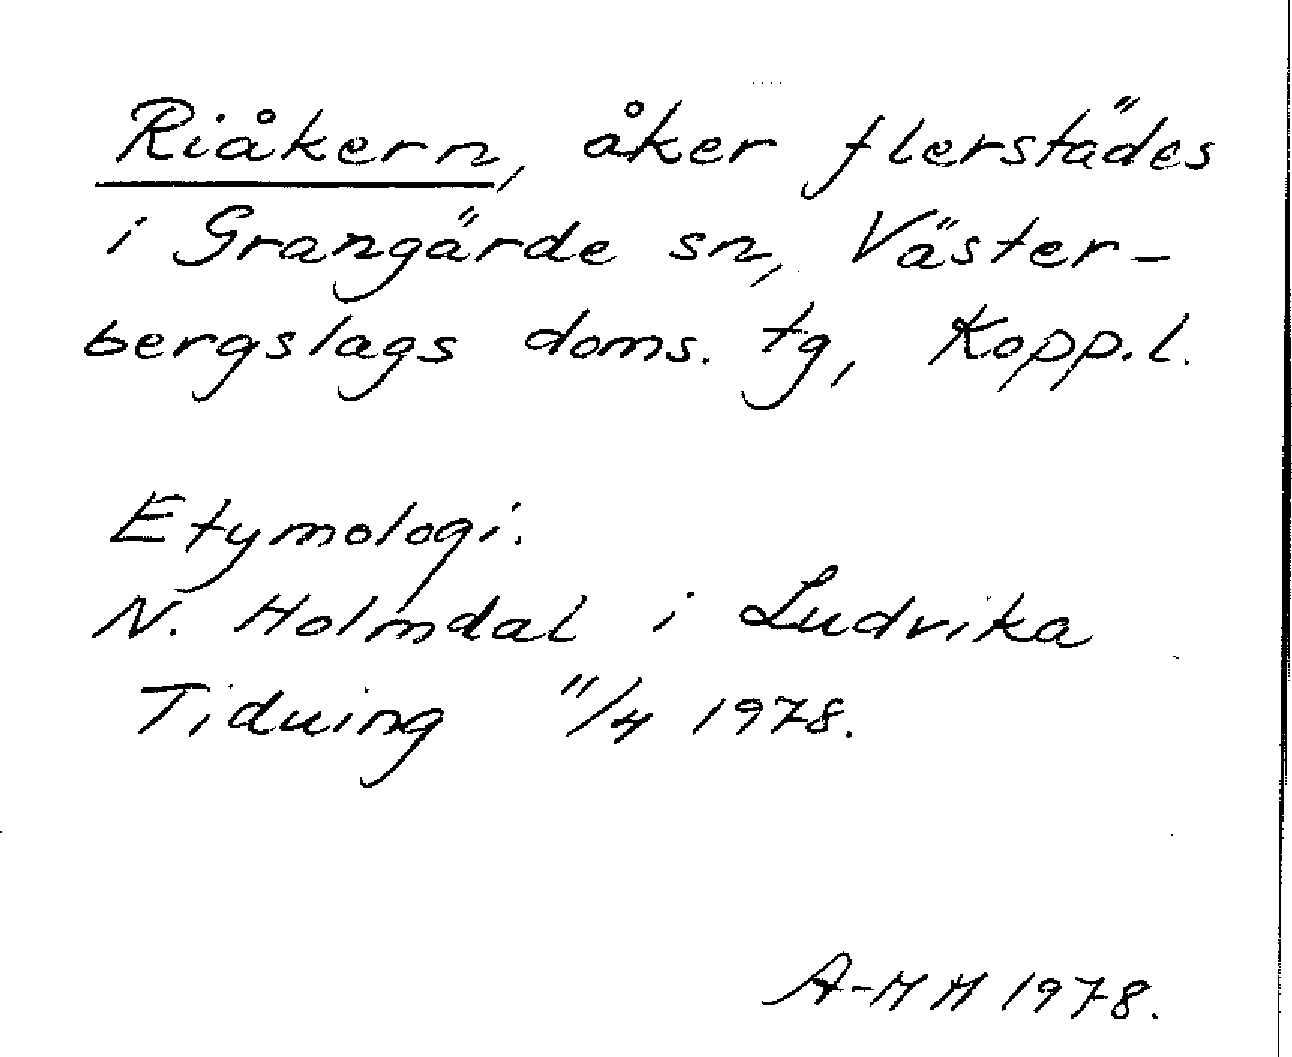 Riåkern, åker flerstädes
i Grangärde sn, Väster-
bergslags doms. tg, Kopp.l.
Etymologi.
N. Holmdal i Ludvika
Tidning 11/4 1978.
A-MH 1978.